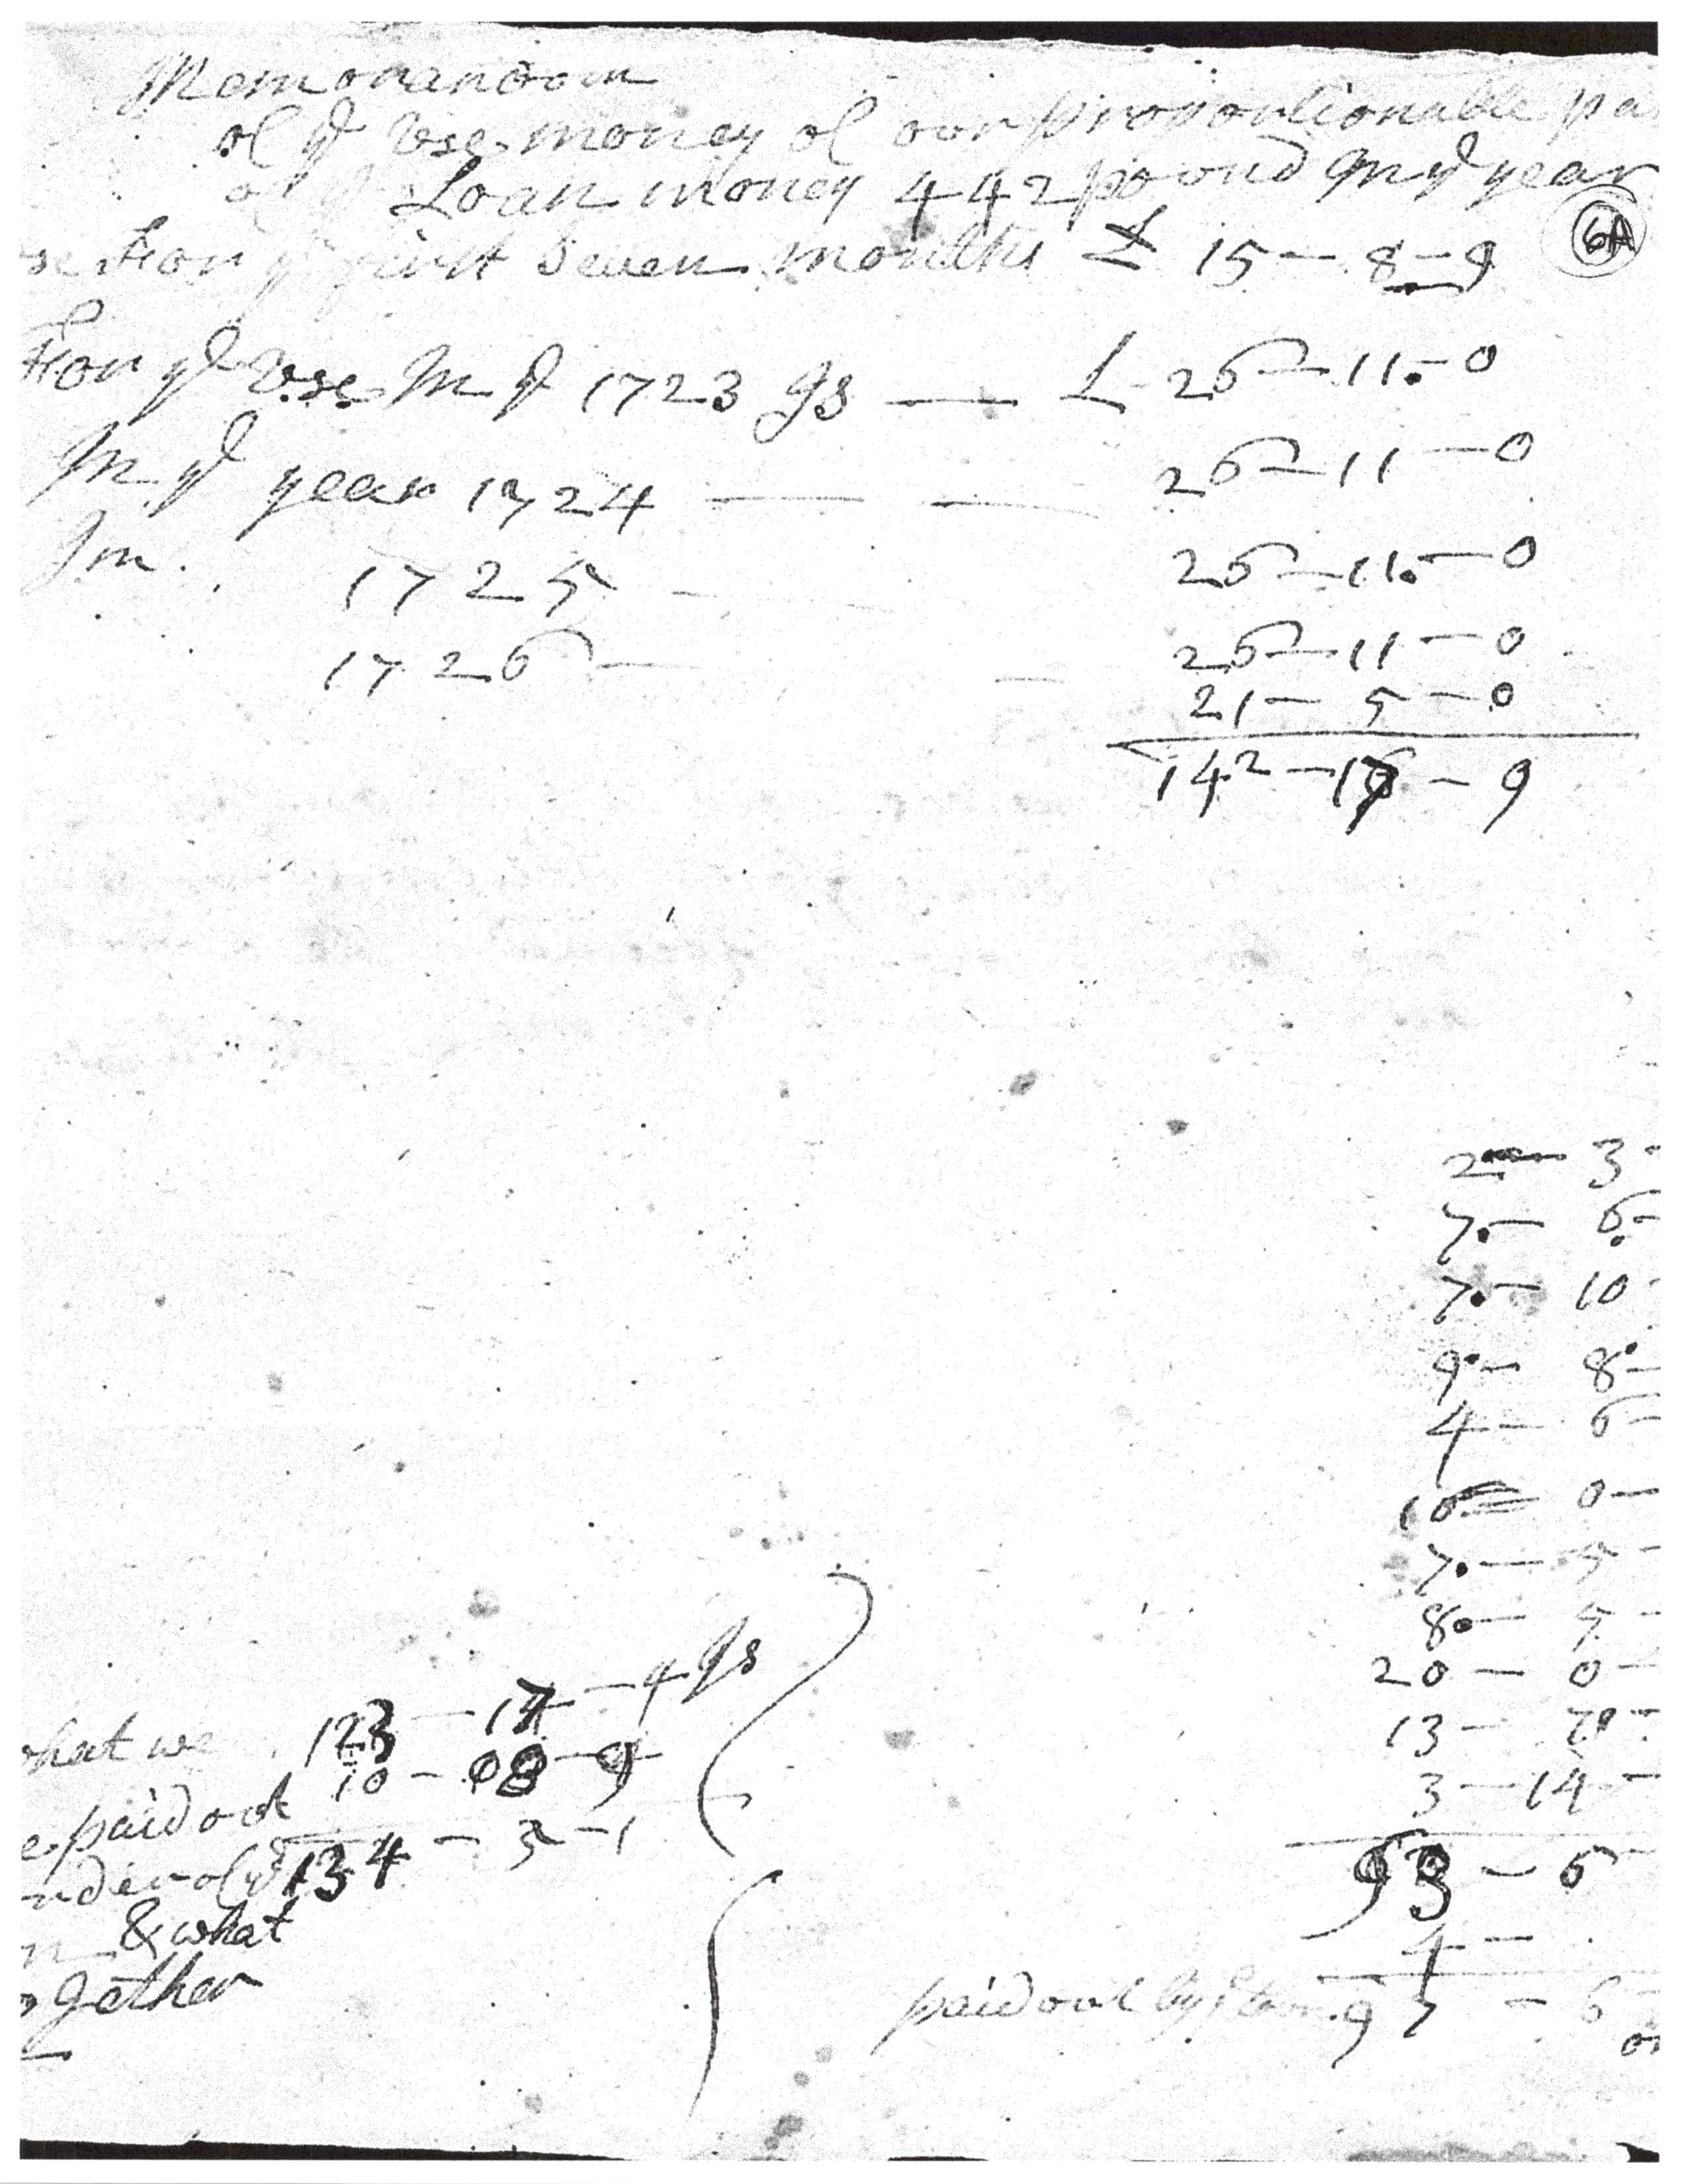 Memorandom
of ye Vse money of our proportionable pa
of ye Loan money 442 pound In ye year
se For ye first Seven months £ 15 - 8 - 9
6A
For ye Vse In ye 1723 Is — £ 26 - 11 - 0
In ye year 1724 — — 26 - 11 - 0
In 1725 - 26 - 11 - 0
1726 — — 26 - 11 - 0
21 - 5 - 0
142 - 17 - 9
2 - 3 -
7 - 6 -
7 - 10 -
9 - 8 -
4 - 6 -
10 - 0 -
7 - 5 -
8 - 5 -
20 - 0 -
13 - 7 -
3 - 14 -
93 - 6
4 -
paid out by 97 - 6
what we 123 - 17 - 4 Is
10 - 08 - 9
e paid out
134 - 5 - 1
& what
ogether